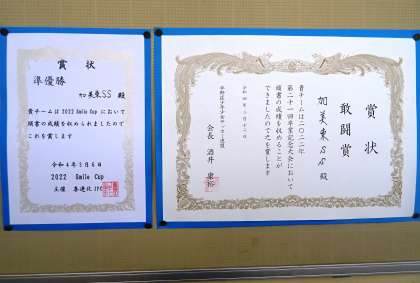 賞状
準優勝
加美東SS 殿
貴チームは2022 Smile Cup において
頭書の成績を収められましたので
これを賞します
令和4年3月6日
2022 Smile Cup
主催 巻連北JFC
賞状
敢闘賞
加美東SS殿
貴チームは二〇二二年
第二十一回卒業記念大会において
頭書の成績を収めることが
できましたので之を賞します
会長 酒井